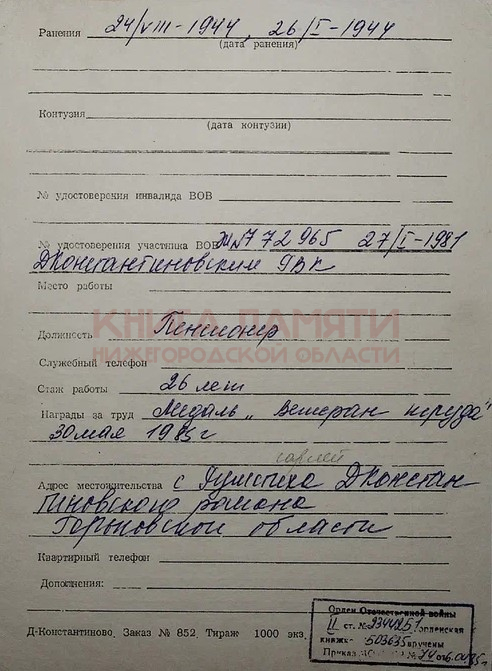 Ранения 24/VIII-1944, 26/I-1944
(дата ранения)
Контузия
(дата контузии)
№ удостоверения инвалида ВОВ
№ удостоверения участника ВОВ № 772965 27/I-1981
Д Константиновским РВК
Место работы
КНИГА ПАМЯТИ
Должность Пенсионер
НИЖЕГОРОДСКОЙ ОБЛАСТИ
Служебный телефон
Стаж работы 26 лет
Награды за труд Медаль „Ветеран труда"
30 мая 1985 г
Адрес местожительства с ДКонстан
тиновского района
Горьковской области
Квартирный телефон
Дополнения:
Орден Отечественной войны
II ст. №
книжк 503635 вручены
Приказ
Д-Константиново. Заказ № 852. Тираж 1000 экз.